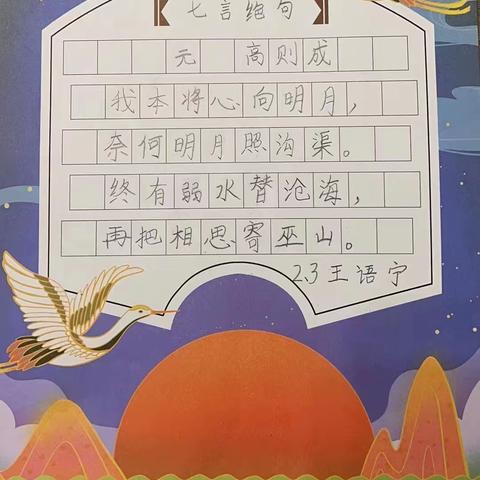 七言绝句
元 高则成
我本将心向明月，
奈何明月照沟渠。
终有弱水替沧海，
再把相思寄巫山。
2.3王语宁